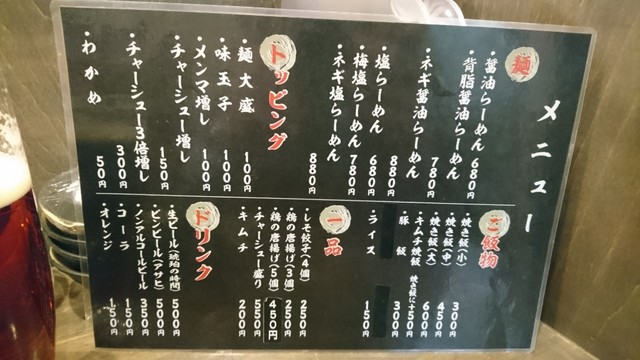 メニュー
麺
・醤油らーめん 680円
・背脂醤油らーめん 780円
・ネギ醤油らーめん 880円
・塩らーめん 680円
・梅塩らーめん 780円
・ネギ塩らーめん 880円
トッピング
・麺大盛 100円
・味玉子 100円
・メンマ増し 100円
・チャーシュー増し 150円
・チャーシュー3倍増し 300円
・わかめ 50円
ご飯物
・焼き飯(小) 300円
・焼き飯(中) 450円
・焼き飯(大) 600円
・キムチ焼飯 焼き飯に+50円
・豚飯 300円
・ライス 150円
一品
・しそ餃子(4個) 250円
・鶏の唐揚げ(3個) 250円
・鶏の唐揚げ(5個) 450円
・チャーシュー盛り 550円
・キムチ 200円
ドリンク
・生ビール(琥珀の時間) 500円
・ビンビール(アサヒ) 500円
・ノンアルコールビール 350円
・コーラ 150円
・オレンジ 150円